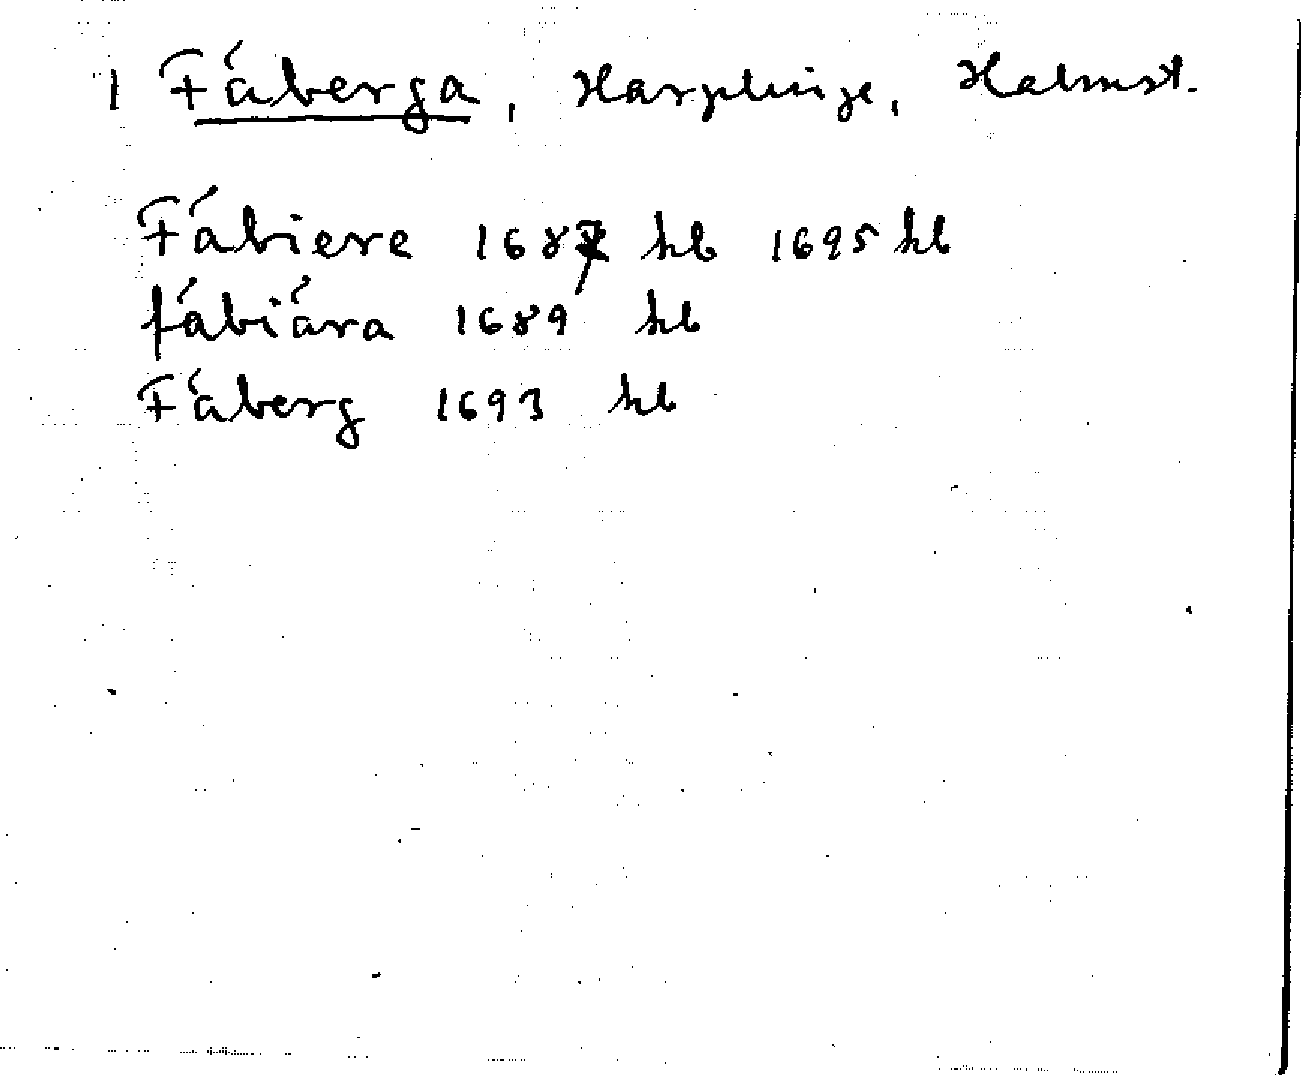 1 Fáberga, Harplinge, Halmst.
Fábiere 1687 hb 1695 hb
fábiára 1689 hb
Fáberg 1693 hb